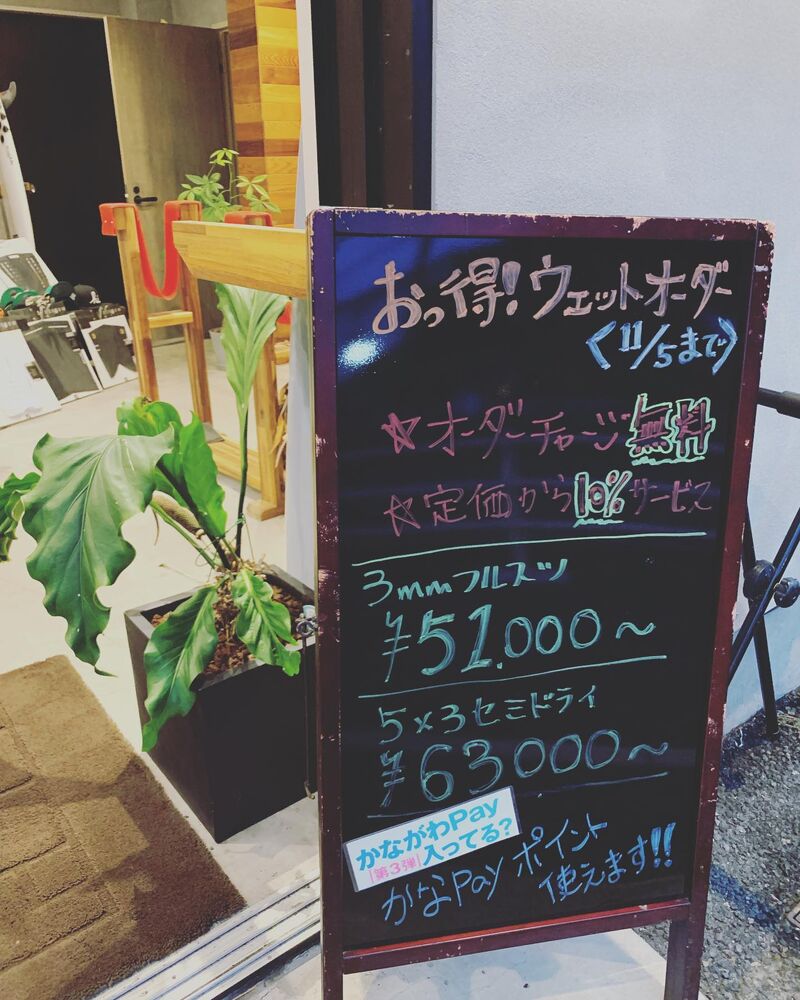 おっ得!ウェットオーダー
〈11/5まで〉
☆オーダーチャージ無料
☆定価から10%サービス
3mmフルスツ
¥51.000～
5×3セミドライ
¥63000～
かながわPay
第3弾 入ってる?
かなPayポイント
使えます!!